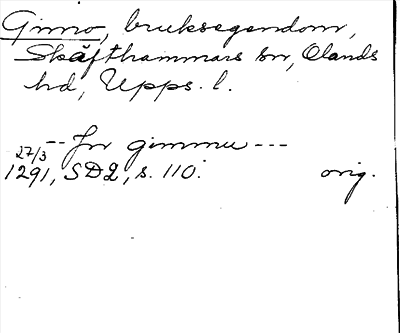 Gimo, bruksegendom,
Skäfthammars sn, Olands
hd, Upps. l.
-- Jn gimmu ---
27/3
1291, SD2, s. 110. orig.